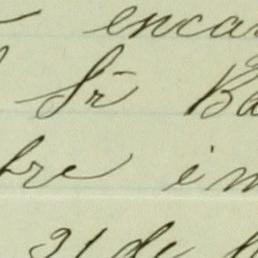 enca
Sr Ba
bre im
31 de